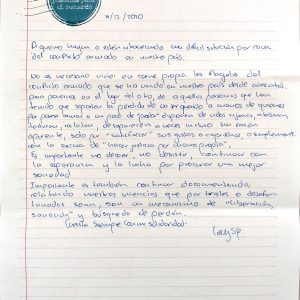 el recuerdo
11/12/2020
A quienes hayan o estén atravesando una difícil situación por causa
del conflicto armado en nuestro país.
No es necesario vivir en carne propia los flagelos del
conflicto armado que se ha vivido en nuestro país desde
para ponernos en el lugar del otro, de aquellas personas que han
tenido que soportar la pérdida de un ser querido a manos de quienes
por portar armas o un poco de poder disponen de vidas ajenas,
torturan, violentan, desaparecen a veces incluso sin razón
aparente, solo por "satisfacer" sus gustos o egoísmos o simplemente
con la excusa de "hacer justicia por mano propia".
Es importante no decaer, no desistir, continuar con
la esperanza y la lucha por procurar una mejor
sociedad.
Importante es también continuar documentando,
relatando nuestras vivencias que por tristes o desafor-
tunadas sean, son un mecanismo de liberación,
sanación y búsqueda de perdón.
Hasta siempre con mi solidaridad.